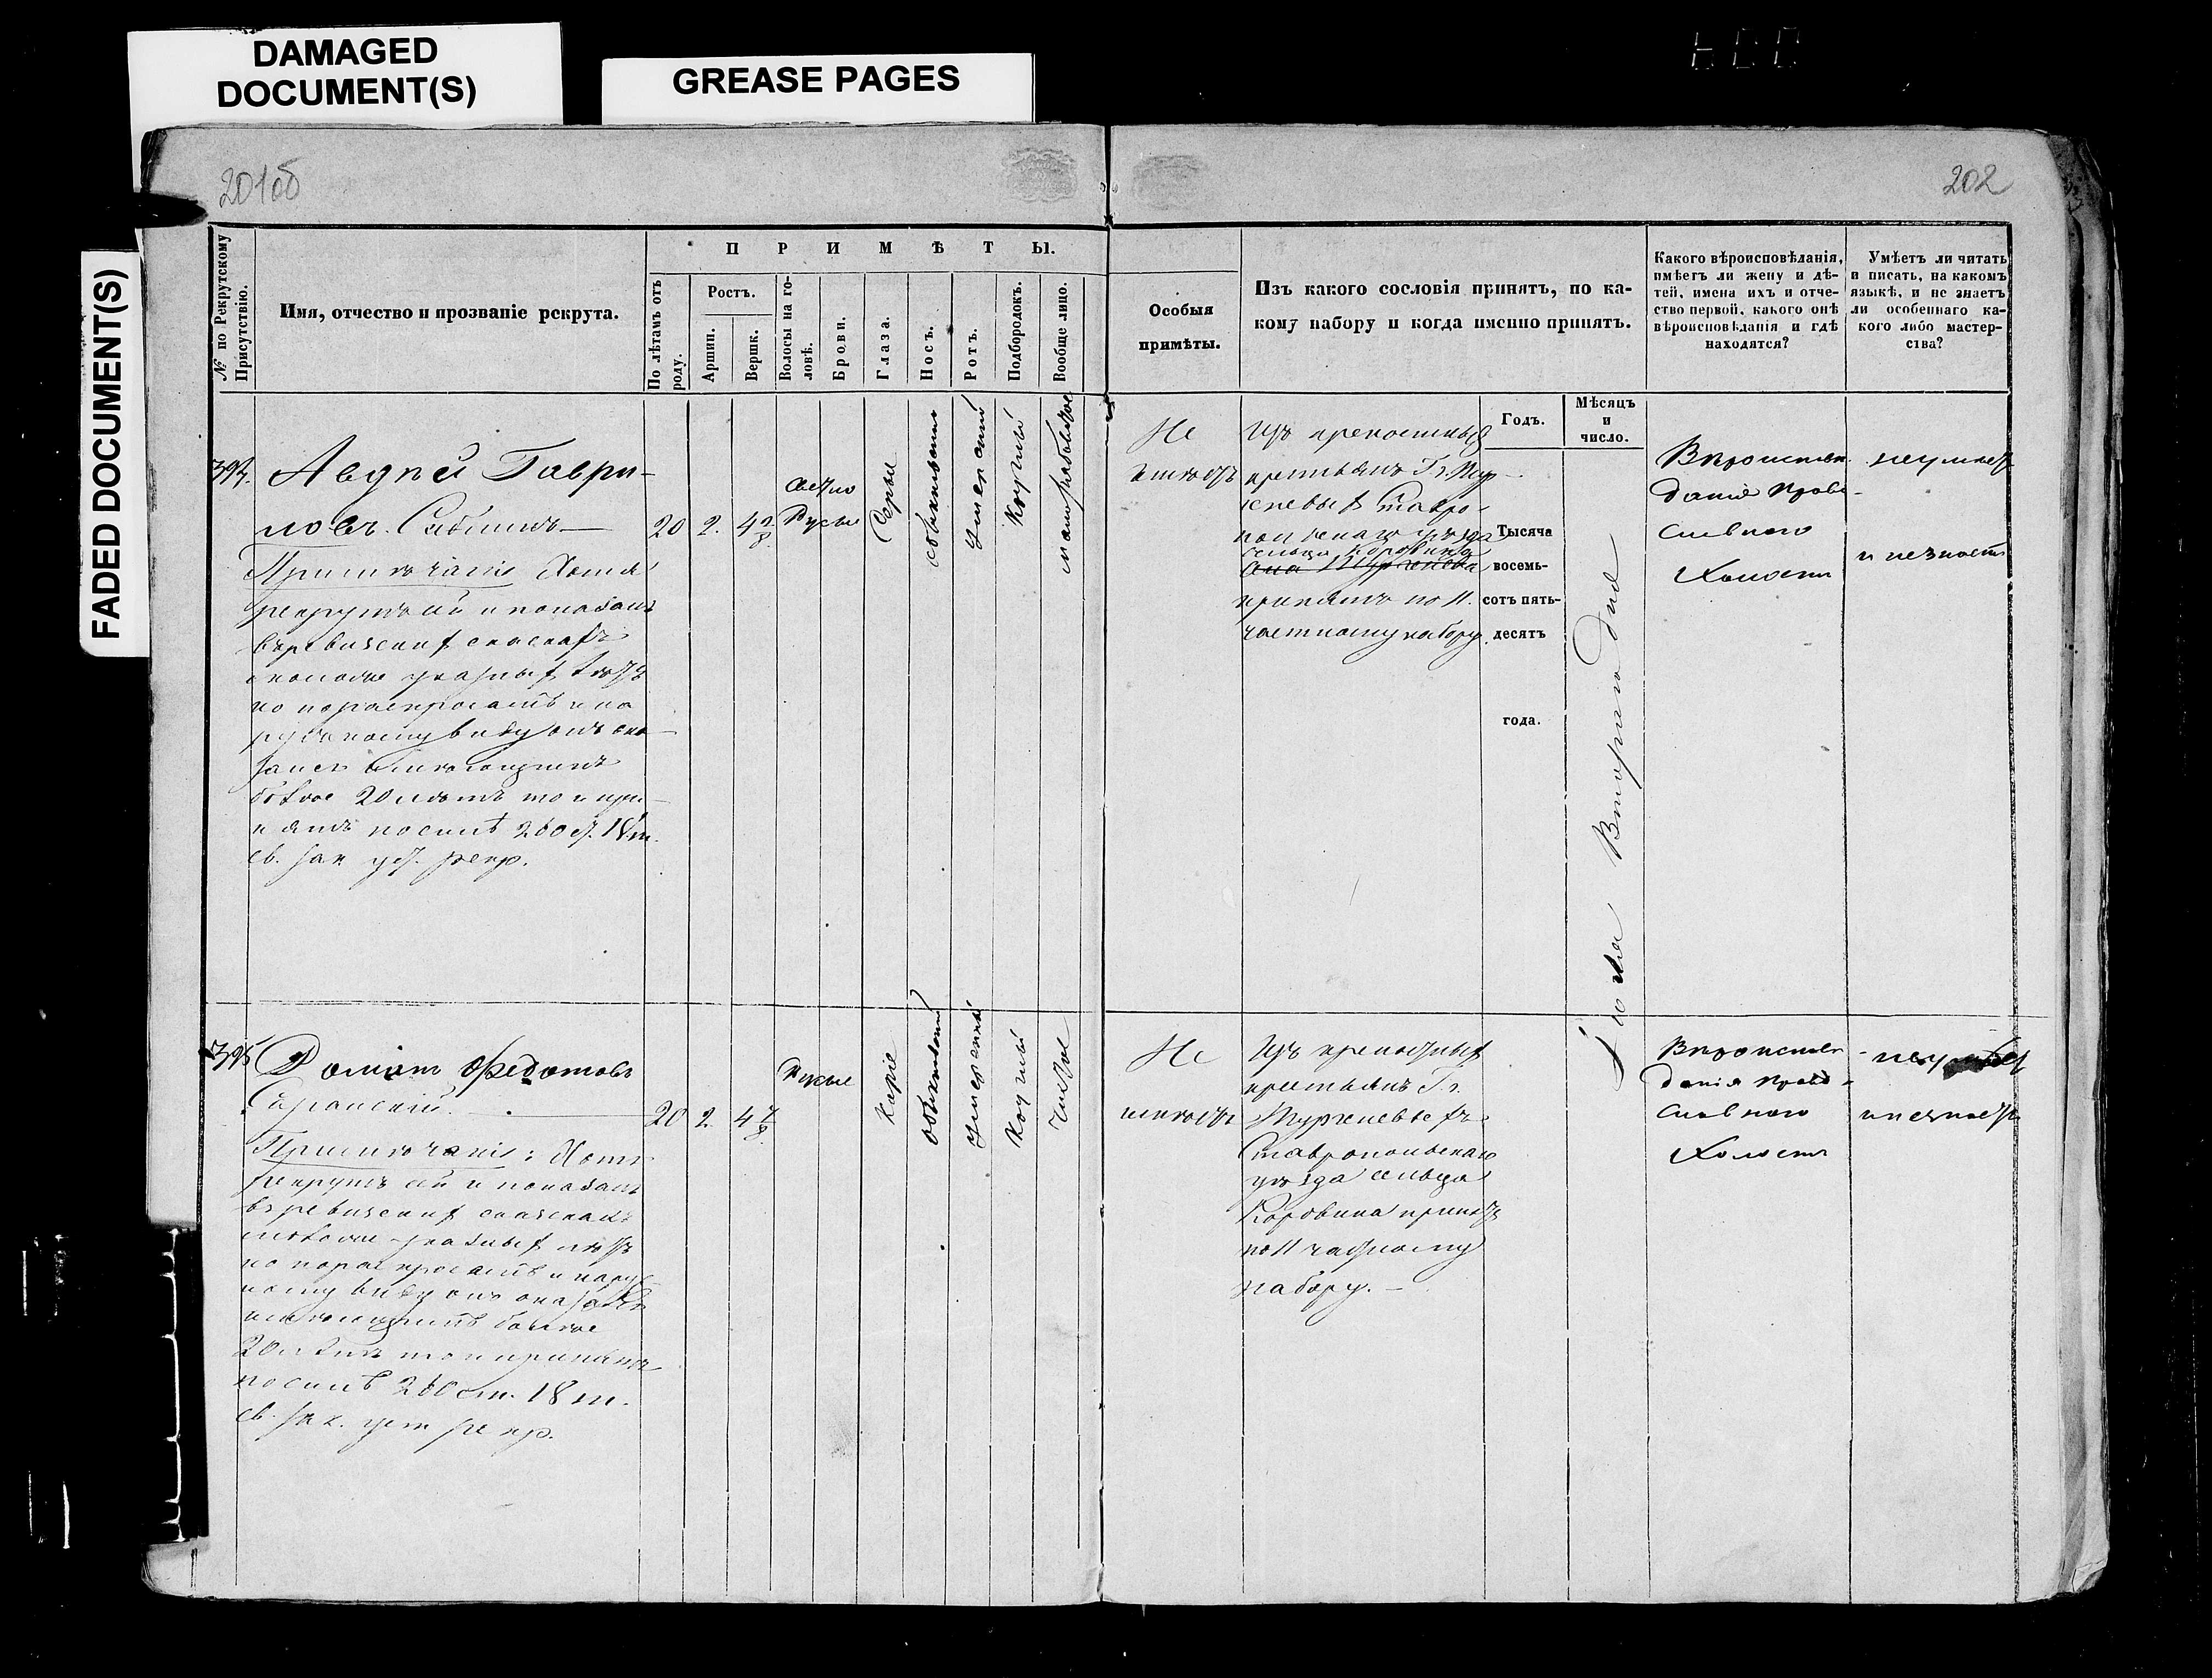 DAMAGED
DOCUMENT(S)
GREASE PAGES
FADED DOCUMENT(S)
201об
202
№ по Рекрутскому
Присутствію.
Имя, отчество и прозваніе рекрута.
ПРИМѢТЫ.
По лѣтамъ отъ
роду.
Ростъ.
Аршин.
Вершк.
Волосы на го-
ловѣ.
Брови.
Глаза.
Носъ.
Ротъ.
Подбородокъ.
Вообще лицо.
Особыя
примѣты.
Изъ какого сословія принятъ, по ка-
кому набору и когда именно принятъ.
Какого вѣроисповѣданія,
имѣетъ ли жену и дѣ-
тей, имена ихъ и отче-
ство первой, какого онѣ
вѣроисповѣданія и гдѣ
находятся?
Умѣетъ ли читать
и писать, на какомъ
языкѣ, и не знаетъ
ли особеннаго ка-
кого либо мастер-
ства?
Годъ.
Мѣсяцъ
и
число.
394.
Авдѣй Гаври-
ловъ
Примѣчаніе Хотя
рекрутъ сей и показанъ
въ ревизскихъ сказкахъ
указныхъ лѣтъ
но по
виду онъ ока-
зался имѣющимъ
болѣе 20 лѣтъ то и при-
нятъ по силѣ 260 ст. 18 т.
св. зак. уст. рекр.
20
2.
4 2/8.
Светло
Русые
Серые
обыкновенный
умеренный
Круглый
Не
имѣетъ
Изъ крепостныхъ
крестьянъ Г. Тур-
геневыхъ Ставро-
польскаго уѣзда
сельца Коровина
принятъ по 11.
частному набору.
Тысяча
восемь-
сотъ пять-
десятъ
года.
Іюля Втораго дня
Вѣроиспов-
данія Право-
славнаго
Холостъ
неумѣетъ
и незнаетъ
395
Федотовъ
Саранскій.
Примѣчаніе: Хотя
рекрутъ сей и показанъ
въ ревизскихъ сказкахъ
указныхъ лѣтъ
но по
ному виду онъ оказался
имѣющимъ болѣе
20 лѣтъ то и принятъ
по силѣ 260 ст. 18 т.
св. зак. уст рекр.
20
2.
4 7/8.
Русые
Каріе
обыкновенный
умеренный
Круглый
Чистое
Не
имѣетъ
Изъ крепостныхъ
крестьянъ Г.
Тургеневыхъ
Ставропольскаго
уѣзда сельца
Коровина принятъ
по 11 частному
набору. —
Вѣроиспов-
данія Право-
славнаго
Холостъ
неумѣетъ
и незнаетъ